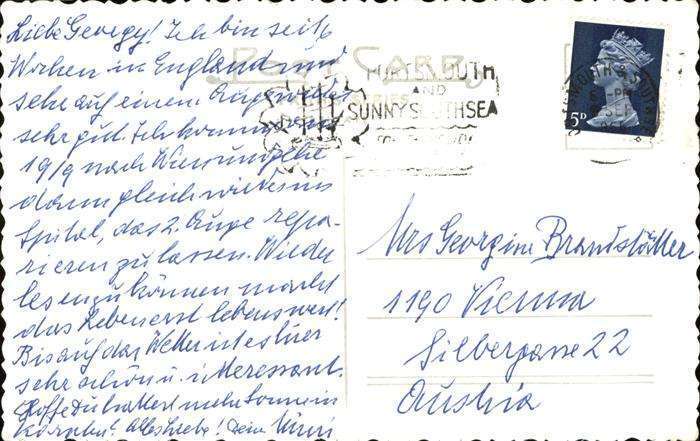 Liebe Georgy! Ich bin seit 6
Wochen in England und
sehe auf einem Auge wieder
sehr gut. Ich komme am
19/9 nach Wien u. gehe
dann gleich wieder ins
Spital, das 2. Auge repa-
rieren zu lassen. Wieder
lesen zu können macht
das Leben erst lebenswert!
Bis auf das Wetter ist es hier
sehr schön u. interessant.
Hoffe Du hattest mehr Sonne in
Alles Liebe! Deine
POST CARD
PORTSMOUTH
AND
SUNNY SOUTHSEA
5D
Mrs Georgine Brandstätter
1190 Vienna
Silbergasse 22
Austria